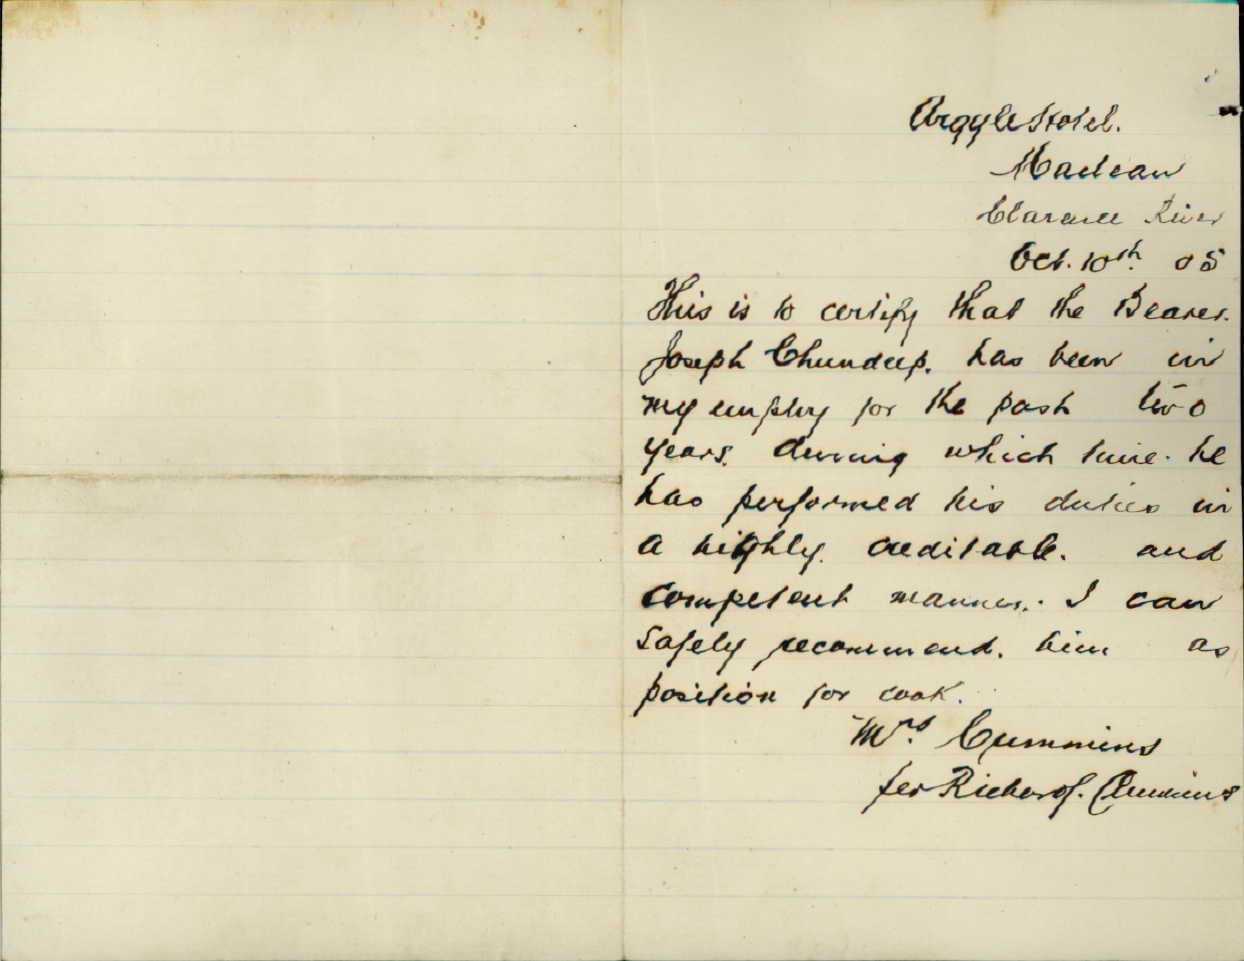 Argyle Hotel.
Maclean
Clarence River
Oct. 10th. 05
This is to certify that the Bearer.
Joseph Chundeep. has been in
my employ for the past two
years. during which time. he
has performed his duties in
a highly. creditable. and
competent manner. I can
safely recommend. him as
position for cook.
Mrs. Cummins
per Richard. Cummins